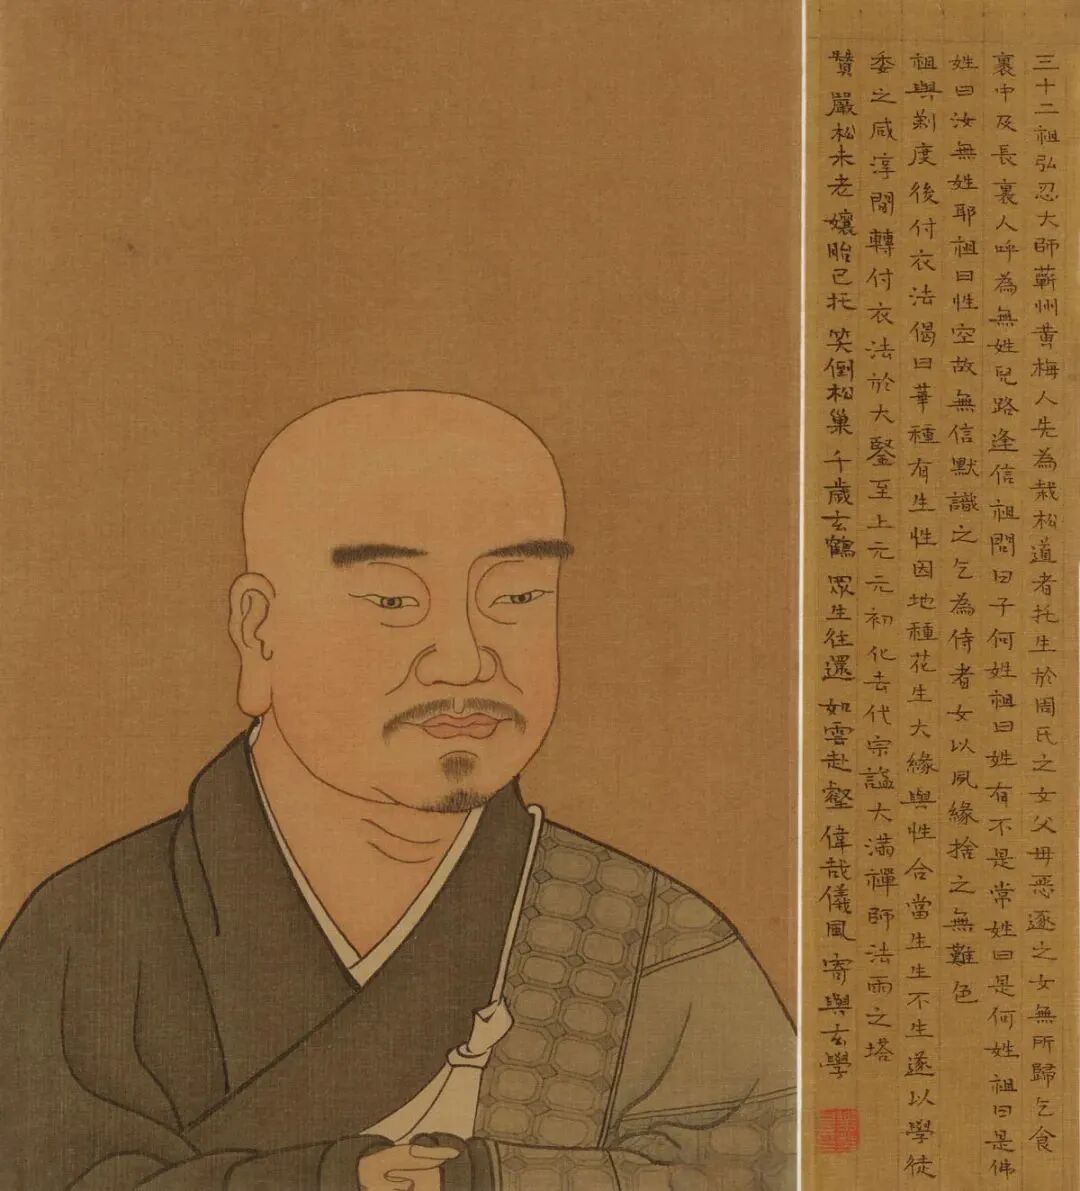 三十二祖弘忍大師蘄州黄梅人先為栽松道者托生於周氏之女父母惡逐之女無所歸乞食
裏中及長裏人呼為無姓兒路逢信祖問曰子何姓祖曰姓有不是常姓曰是何姓祖曰是佛
姓曰汝無姓耶祖曰性空故無信默識之乞為侍者女以夙緣捨之無難色
祖與剃度後付衣法偈曰華種有生性因地種花生大緣與性合當生生不生遂以學徒
委之咸淳間轉付衣法於大鑒至上元元初化去代宗謚大滿禪師法雨之塔
贊 嚴松未老 孃胎已托 笑倒松巢 千歲玄鶴 眾生往還 如雲赴壑 偉哉儀風 寄與玄學